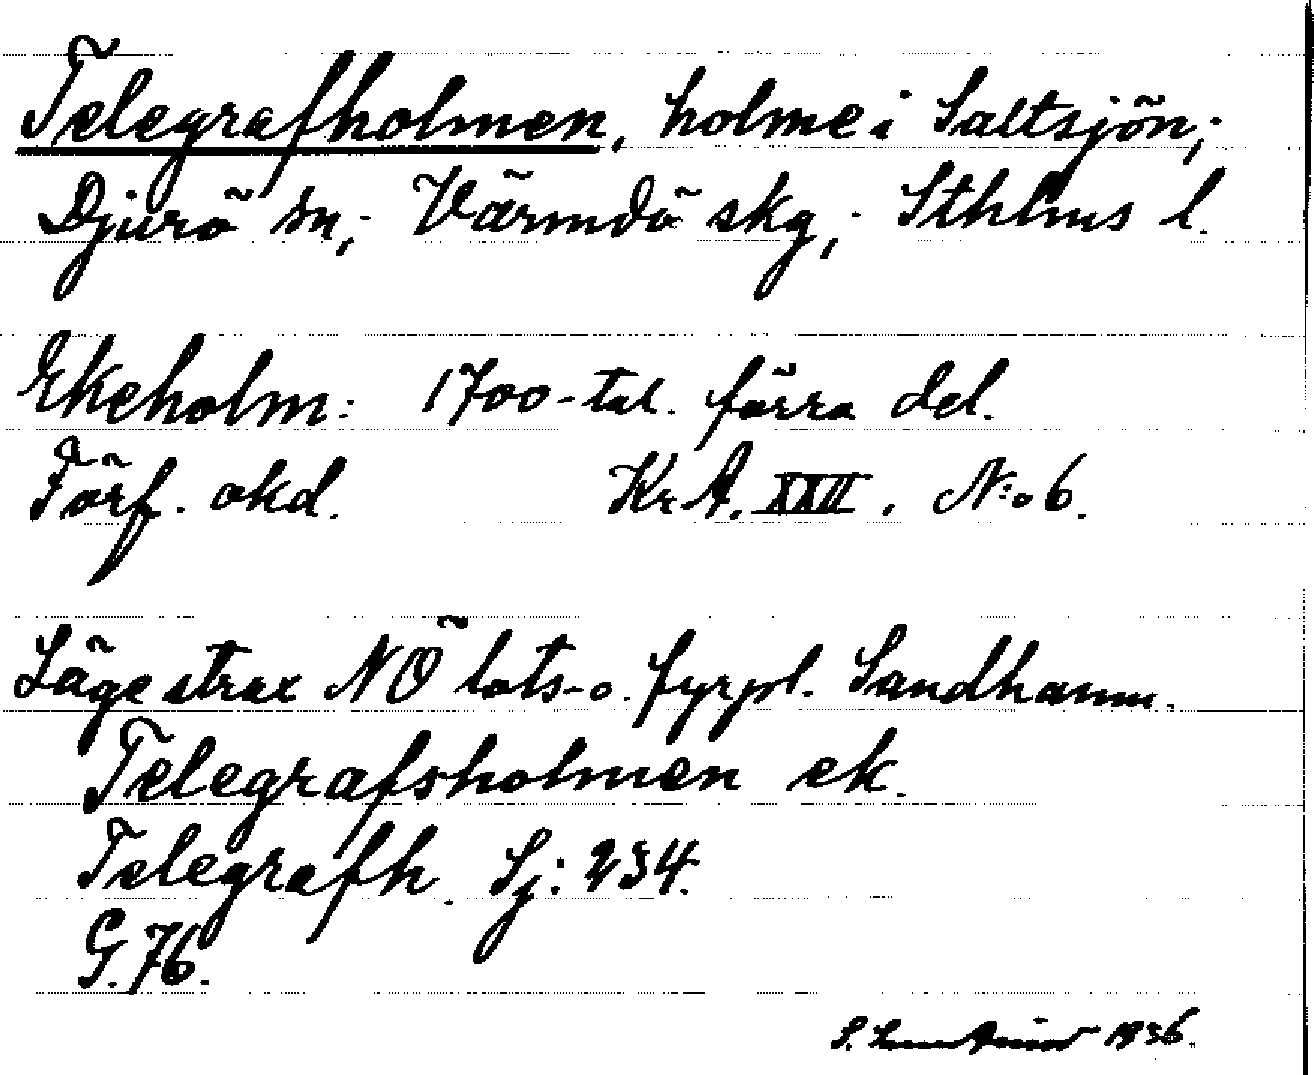 Telegrafholmen, holme i Saltsjön,;
Djurö sn,; Värmdö skg,; Sthlms l.
Ekeholm: 1700-tal. förra del.
Förf. okd. Kr.A. XXII. N:o 6.
Läge strax NÖ lots- o. fyrpl. Sandhamn.
Telegrafsholmen ek.
Telegrafh. Sj: 234.
G. 76.
S. 1936.